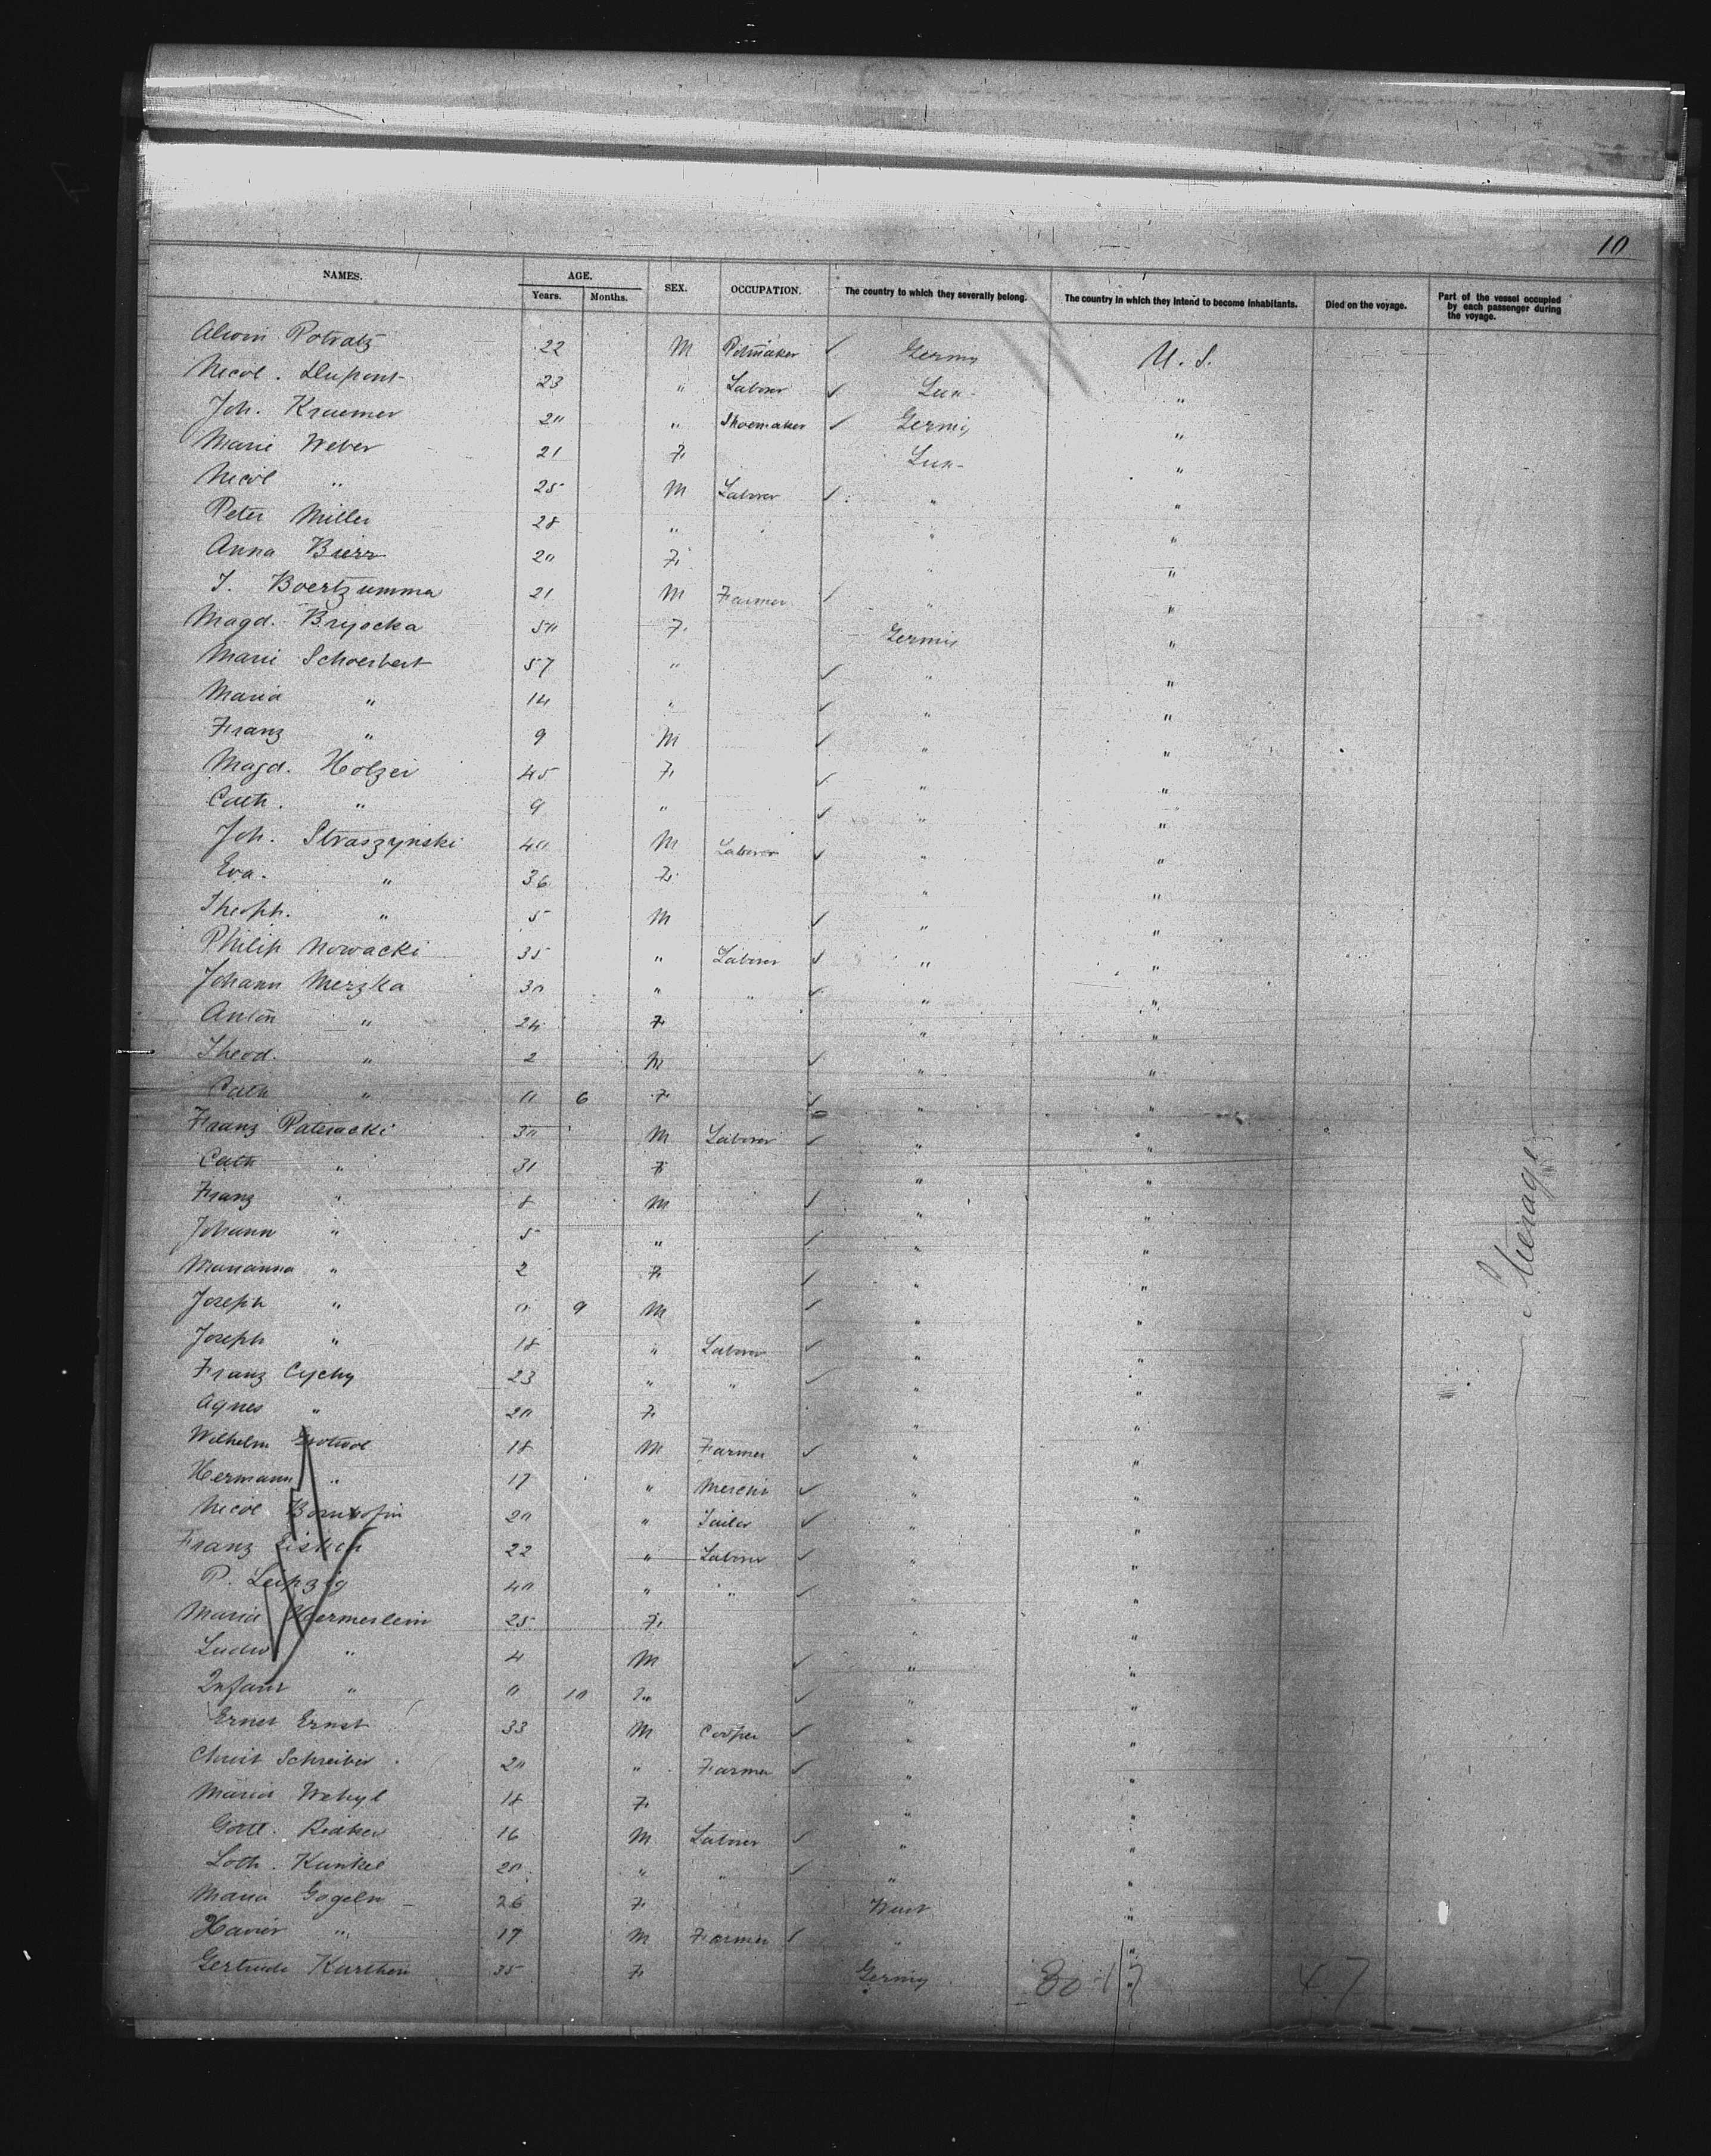 10
NAMES. AGE. SEX. OCCUPATION. The country to which they severally belong. The country in which they intend to become inhabitants. Died on the voyage. Part of the vessel occupied by each passenger during the voyage.
Years. Months.
Alwin Potratz 22 M ✓ Germy U. S.
Nicol. Dupont 23 " Laborer ✓ Lux- "
Joh. Kraemer 20 " Shoemaker ✓ Germy "
Marie Weber 21 F Lux- "
Nicol " 25 M Laborer ✓ " "
Peter Miller 28 " " "
Anna Bierr 20 F " "
J. Boertzumma 21 M Farmer ✓ " "
Magd. Bryocka 50 F Germy "
Marie Schoerbert 57 " ✓ " "
Maria " 14 " ✓ " "
Franz " 9 M ✓ " "
Magd. Holzer 45 F ✓ " "
Cath. " 9 " ✓ " "
Joh. Straszynski 40 M Laborer ✓ " "
Eva. " 36 F " "
Theoph. " 5 M ✓ " "
Philip Nowacki 35 " Laborer ✓ " "
Johann Merzka 30 " " ✓ " "
Anton " 24 F " "
Theod. " 2 M ✓ " "
Cath " 0 6 F ✓ " "
Franz Pateracki 30 M Laborer ✓ " "
Cath " 31 F " "
Franz " 8 M ✓ " "
Johann " 5 " ✓ " "
Marianna " 2 F ✓ " "
Joseph " 0 9 M ✓ " "
Joseph " 18 " Laborer ✓ " "
Franz Cychy 23 " " ✓ " "
Agnes " 20 F " "
Wilhelm 18 M Farmer ✓ " "
Hermann " 17 " ✓ " "
Nicol 20 " Tailor ✓ " "
Franz 22 " Laborer ✓ " "
P. Leipzig 40 " " ✓ " "
Maria Hermerlein 25 F " "
Ludw " 4 M ✓ " "
Infant " 0 10 F ✓ " "
Ernst Ernst 33 M Cooper ✓ " "
Christ Schreiber 20 " Farmer ✓ " "
Maria 18 F " "
Gottl. Radker 16 M Laborer ✓ " "
Loth. Kunkel 20 " " ✓ " "
Maria Gogeln 26 F Wurt "
Xavier " 17 M Farmer ✓ " "
Gertrude Kurthen 35 F Germy "
30 17 47
Steerage